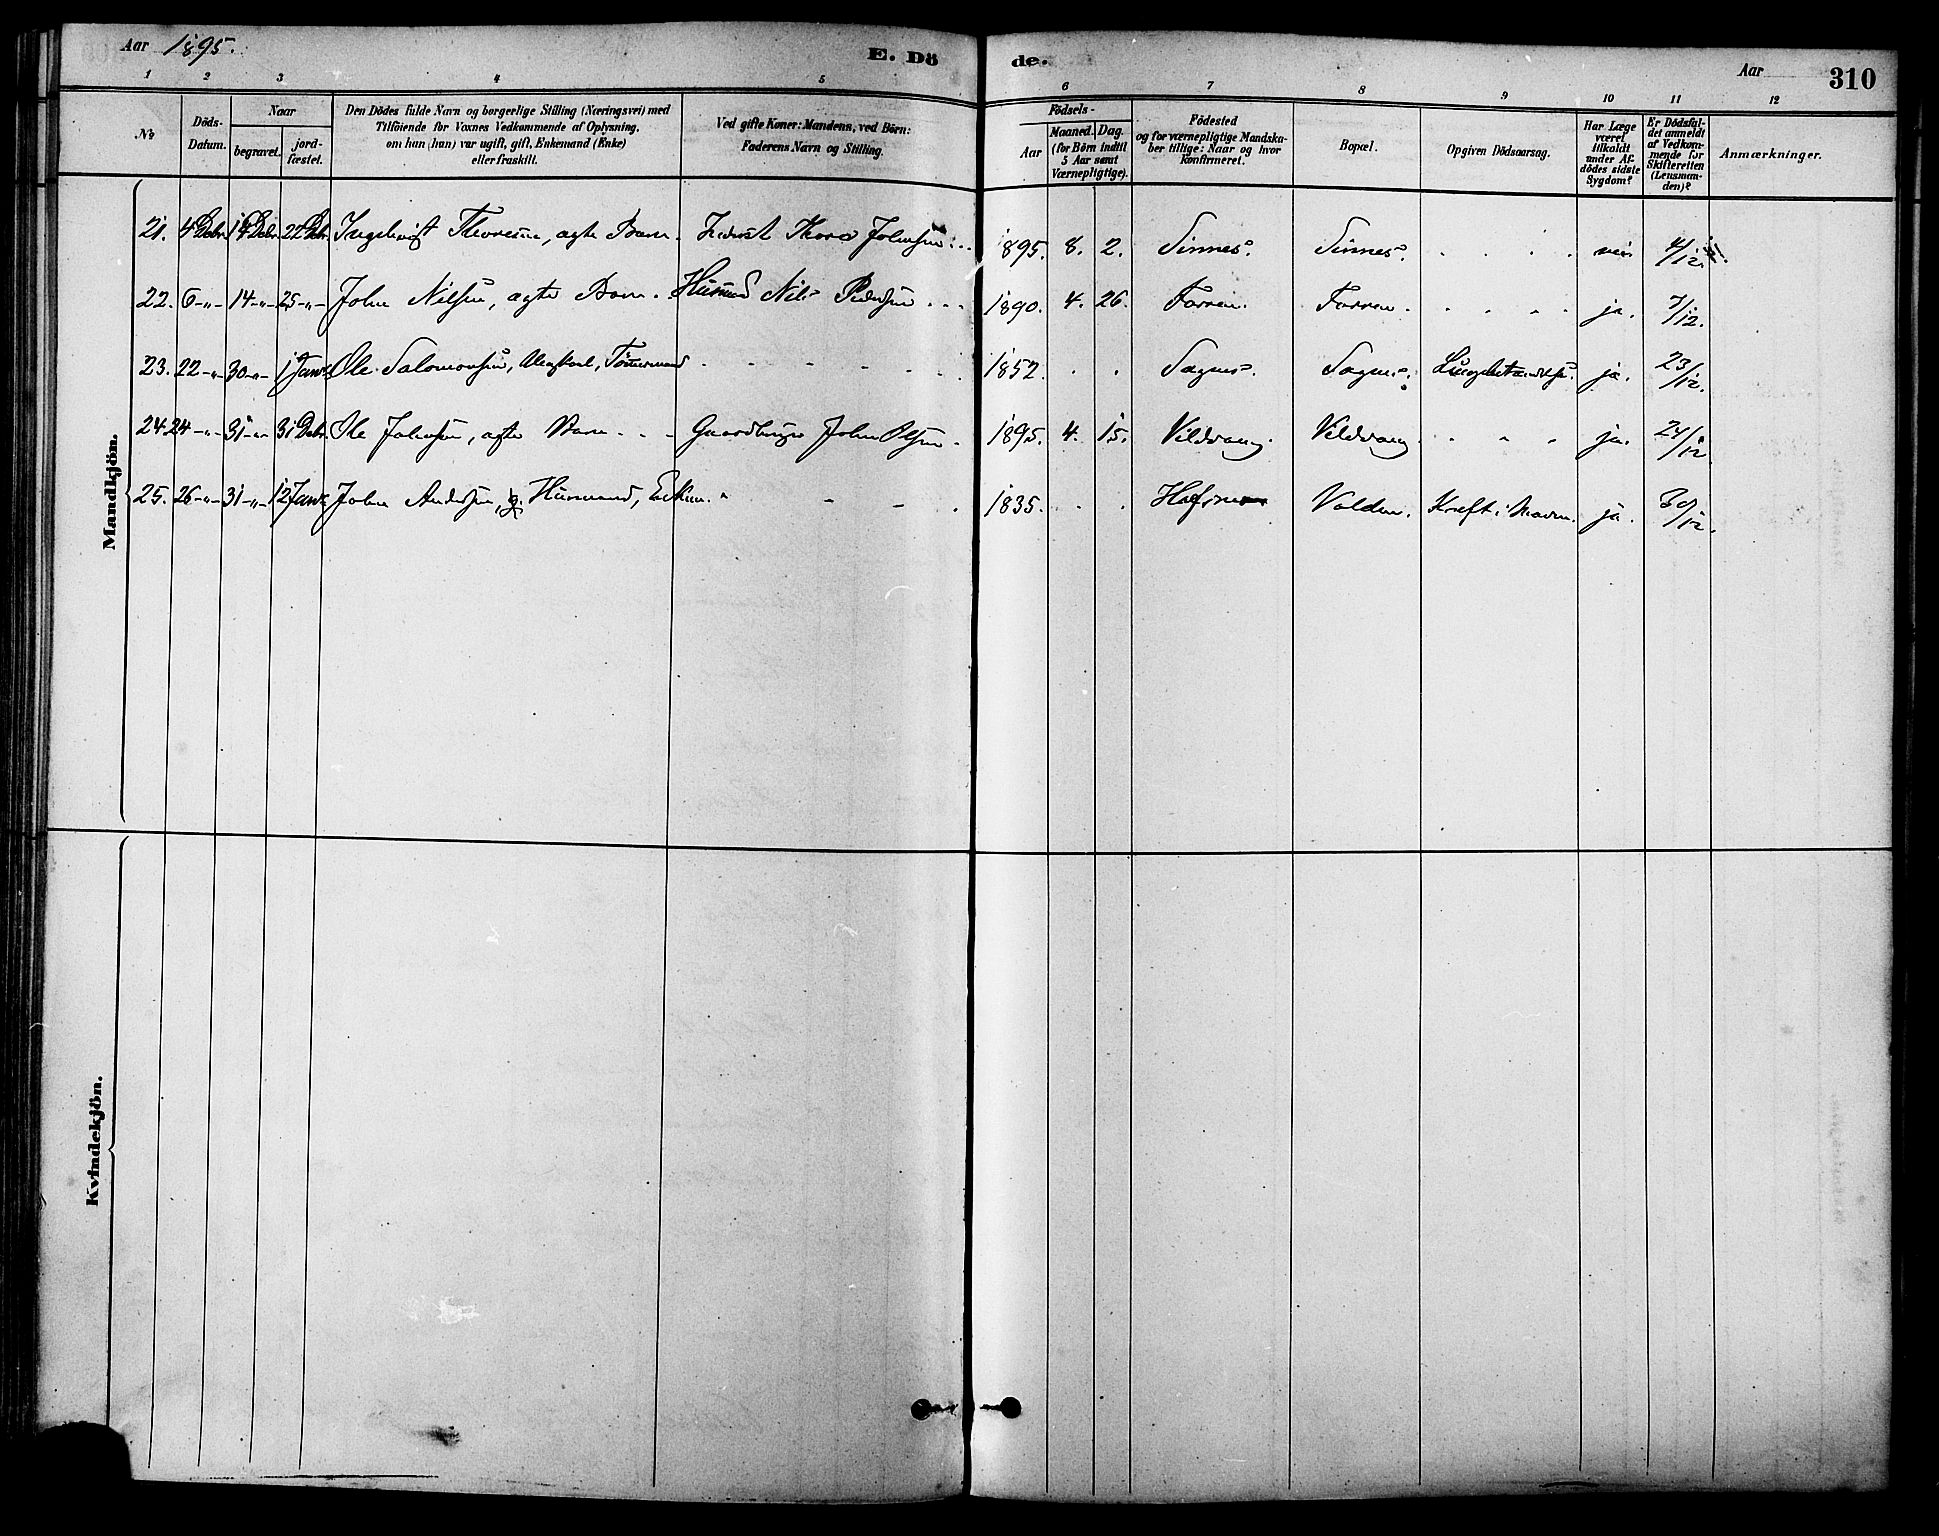 Aar 1895. E. Dö de. Aar 310
1 2 3 4 5 6 7 8 9 10 11 12
No Döds-Datum. Naar begravet. jord-fæstet. Den Dödes fulde Navn og borgerlige Stilling (Næringsvei) med Tilföiende for Voxnes Vedkommende af Oplysning, om han (hun) var ugift, gift, Enkemand (Enke) eller fraskilt. Ved gifte Koner: Mandens, ved Börn: Faderens Navn og Stilling. Födsels- Aar Maaned. Dag. (for Börn indtil 5 Aar samt Værnepligtige). Födested og for værnepligtige Mandskaber tillige: Naar og hvor Konfirmeret. Bopæl. Opgiven Dödsaarsag. Har Læge været tilkaldt under Afdödes sidste Sygdom? Er Dödsfaldet anmeldt af Vedkommende for Skifteretten (Lensmanden)? Anmærkninger.
Mandkjön.
21. 4 Debr 14 Debr 22 Debr. Thoresen, ægte Barn. Thore Johnsen 1895. 8. 2. Sinnes. Sinnes. nei 4/12.
22. 6 -"- 14 -"- 25 -"- John Nilsen, ægte Barn. Husmd Nils Pedersen 1890. 4. 26. Farren. Farren. ja. 7/12.
23. 22 -"- 30 -"- 1 Janr Ole Salomonsen, Ungkarl, Tömmermand 1852. Sagnes. Sagnes. ja. 23/12.
24. 24 -"- 31 -"- 31 Debr. Ole Johnsen, ægte Barn Gaardbruger John Olsen. 1895. 4. 15. Vildvang. Vildvang. ja. 24/12
25. 26 -"- 31 -"- 12 Janr John Andersen, Husmand, Enkem. 1835. Valden. Kræft i Maven. ja. 30/12.
Kvindekjön.